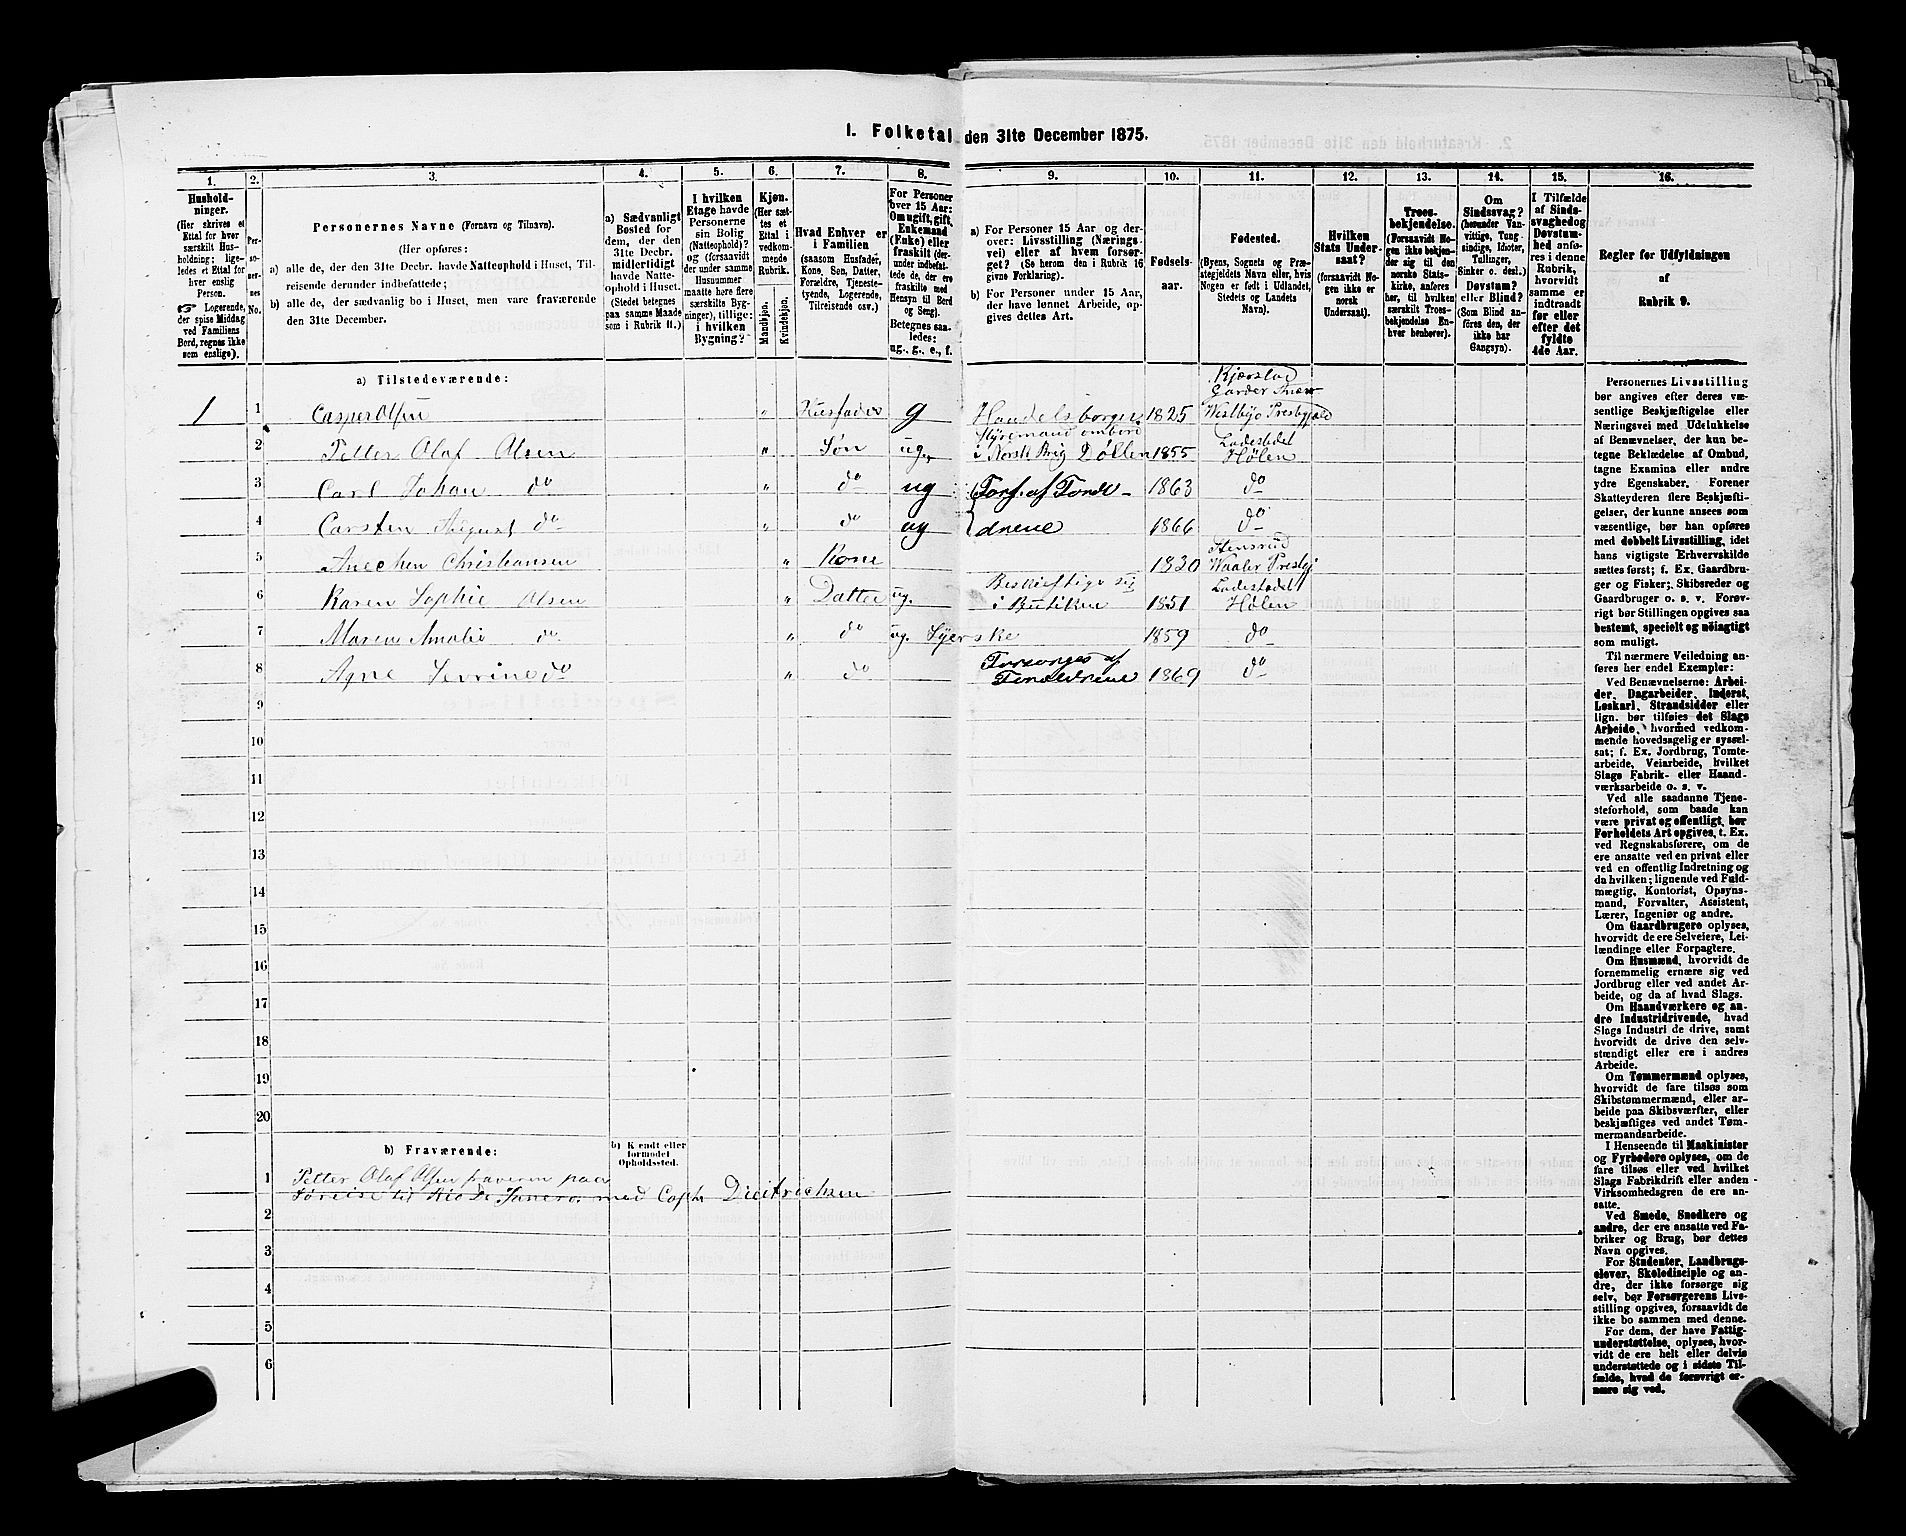 1. Folketal den 31te December 1875.
1. 2. 3. 4. 5. 6. 7. 8. 9. 10. 11. 12. 13. 14. 15. 16.
Hushold-
ninger.
(Her skrives et
Ettal for hver
særskilt Hus-
holdning; lige-
ledes et Ettal for
hver enslig
Person.
☞ Logerende,
der spise Middag
ved Familiens
Bord, regnes ikke
som enslige).
Per-
so-
ner-
nes
No.
Personernes Navne (Fornavn og Tilnavn).
(Her opføres:
a) alle de, der den 31te Decbr. havde Natteophold i Huset, Til-
reisende derunder indbefattede;
b) alle de, der sædvanlig bo i Huset, men vare fraværende
den 31te December.
a) Sædvanligt
Bosted for
dem, der den
31te Decbr.
midlertidigt
havde Natte-
ophold i Huset.
(Stedet betegnes
paa samme Maade
som i Rubrik 11.)
I hvilken
Etage havde
Personerne
sin Bolig
(Natteophold)?
og (forsaavidt
der under samme
Husnummer
maatte høre flere
særskilte Byg-
ninger), tillige:
i hvilken
Bygning?
Kjøn.
(Her sæt-
tes et
Ettal i
vedkom-
mende
Rubrik.
Mandkjøn.
Kvindekjøn.
Hvad Enhver er
i Familien
(saasom Husfader,
Kone, Søn, Datter,
Forældre, Tjeneste-
tyende, Logerende,
Tilreisende osv.)
For Personer
over 15 Aar:
Om ugift, gift,
Enkemand
(Enke) eller
fraskilt (der-
under indbefat-
tede de, der ere
fraskilte med
Hensyn til Bord
og Seng).
Betegnes saa-
ledes:
ug., g., e., f.
a) For Personer 15 Aar og der-
over: Livsstilling (Nærings-
vei) eller af hvem forsør-
get? (Se herom den i Rubrik 16
givne Forklaring).
b) For Personer under 15 Aar,
der have lønnet Arbeide, op-
gives dettes Art.
Fødsels-
aar.
Fødested.
(Byens, Sognets og Præ-
stegjeldets Navn eller, hvis
Nogen er født i Udlandet,
Stedets og Landets
Navn).
Hvilken
Stats Under-
saat?
(forsaavidt No-
gen ikke er
norsk
Undersaat).
Troes-
bekjendelse.
(Forsaavidt No-
gen ikke bekjen-
der sig til den
norske Stats-
kirke, anføres
her, til hvilken
særskilt Troes-
bekjendelse En-
hver henhører).
Om
Sindssvag?
(herunder Van-
vittige, Tung-
sindige, Idioter,
Tullinger,
Sinker o. desl.)
Døvstum?
eller Blind?
(Som Blind an-
føres den, der
ikke har
Gangsyn).
I Tilfælde
af Sinds-
svaghed og
Døvstum-
hed anfø-
res i denne
Rubrik,
hvorvidt
samme er
indtraadt
før eller
efter det
fyldte
4de Aar.
Regler for Udfyldningen
af
Rubrik 9.
a) Tilstedeværende:
Kjærstad
Garder
1 1 Casper Olsen " Husfader g Handelsborger 1825 Westbyo Presbgjeld
Styremand ombord Ladestedet
2 Petter Olaf Olsen " Søn ug. i Norsk Brig Döllen 1855 Hölen
3 Carl Johan do " do ug Fors. af Forel- 1863 do
4 Carsten August do " do ug drene 1866 do
Stensrud
5 Anechen Christiansen " Kone 1820 Waaler Prestgj
Beskjeftige sig Ladestedet
6 Karen Sophie Olsen " Datter ug. i Butiken 1851 Hölen
7 Maren Amalie do " do ug. Syerske 1859 do
Forsørges af
8 Agne Severine do " do Forældrene 1869 do
9
10
11
12
13
14
15
16
17
18
19
20
b) Fraværende:
b) Kendt eller
formodet
Opholdssted.
1 Petter Olaf Olsen fraveren paa
Söreise til Rio De Janero med Capt. Dieitrichsen
2
3
4
5
6
Personernes Livsstilling
bør angives efter deres væ-
sentlige Beskjæftigelse eller
Næringsvei med Udelukkelse
af Benævnelser, der kun be-
tegne Beklædelse af Ombud,
tagne Examina eller andre
ydre Egenskaber. Forener
Skatteyderen flere Beskjæfti-
gelser, der kunne ansees som
væsentlige, bør han opføres
med dobbelt Livsstilling, idet
hans vigtigste Erhvervskilde
sættes først; f. Ex. Gaardbru-
ger og Fisker; Skibsreder og
Gaardbruger o. s. v. Forøv-
rigt bør Stillingen opgives saa
bestemt, specielt og nøiagtigt
som muligt.
Til nærmere Veiledning an-
føres her endel Exempler:
Ved Benævnelserne: Arbei-
der, Dagarbeider, Inderst,
Løskarl, Strandsidder eller
lign. bør tilføies det Slags
Arbeide, hvormed vedkom-
mende hovedsagelig er syssel-
sat; f. Ex. Jordbrug, Tomte-
arbeide, Veiarbeide, hvilket
Slags Fabrik- eller Haand-
værksarbeide o. s. v.
Ved alle saadanne Tjene-
steforhold, som baade kan
være privat og offentligt, bør
Forholdets Art opgives, t. Ex.
ved Regnskabsførere, om de
ere ansatte ved en privat eller
ved en offentlig Indretning og
da hvilken; lignende ved Fuld-
mægtig, Kontorist, Opsyns-
mand, Forvalter, Assistent,
Lærer, Ingeniør og andre.
Om Gaardbrugere oplyses,
hvorvidt de ere Selveiere, Lei-
lændinge eller Forpagtere.
Om Husmænd, hvorvidt de
fornemmelig ernære sig ved
Jordbrug eller ved andet Ar-
beide, og da af hvad Slags.
Om Haandværkere og an-
dre Industridrivende, hvad
Slags Industri de drive, samt
hvorvidt de drive den selv-
stændigt eller ere i andres
Arbeide.
Om Tømmermænd oplyses,
hvorvidt de fare tilsøs som
Skibstømmermænd, eller ar-
beide paa Skibsværfter, eller
beskjæftiges ved andet Tøm-
mermandsarbeide.
I Henseende til Maskinister
og Fyrbødere oplyses, om de
fare tilsøs eller ved hvilket
Slags Fabrikdrift eller anden
Virksomhedsgren de ere an-
satte.
Ved Smede, Snedkere og
andre, der ere ansatte ved Fa-
briker og Brug, bør dettes
Navn opgives.
For Studenter, Landbrugs-
elever, Skoledisciple og an-
dre, der ikke forsørge sig
selv, bør Forsørgerens Livs-
stilling opgives, forsaavidt de
ikke bo sammen med denne.
For dem, der have Fattig-
understøttelse, oplyses, hvor-
vidt de ere helt eller delvis
understøttede og i sidste Til-
fælde, hvad de forøvrigt er-
nære sig ved.